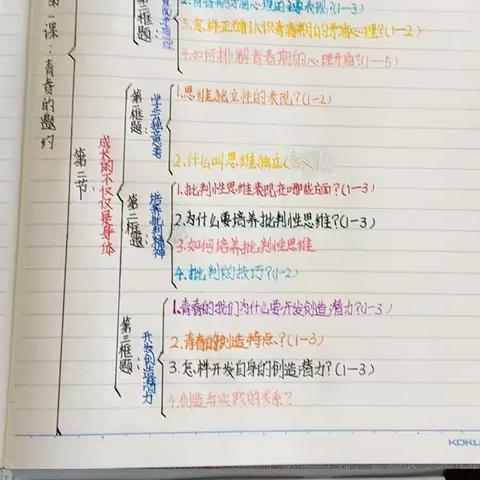 第一课：青春的邀约
第二框题：
2.青春期矛盾心理的主要表现？(1-3)
3.怎样正确认识青春期的矛盾心理？(1-2)
4.如何排解青春期的心理矛盾？(1-5)
第二节
成长的不仅仅是身体
第一框题：
学会独立思考
1.思维独立性的表现？(1-2)
2.什么叫思维独立
第二框题：
培养批判精神
1.批判性思维表现在哪些方面？(1-3)
2.为什么要培养批判性思维？(1-3)
3.如何培养批判性思维
4.批判的技巧？(1-2)
第三框题：
开发创造潜力
1.青春的我们为什么要开发创造潜力？(1-3)
2.青春的创造特点？(1-3)
3.怎样开发自身的创造潜力？(1-3)
4.创造与实践的关系？
KOKU